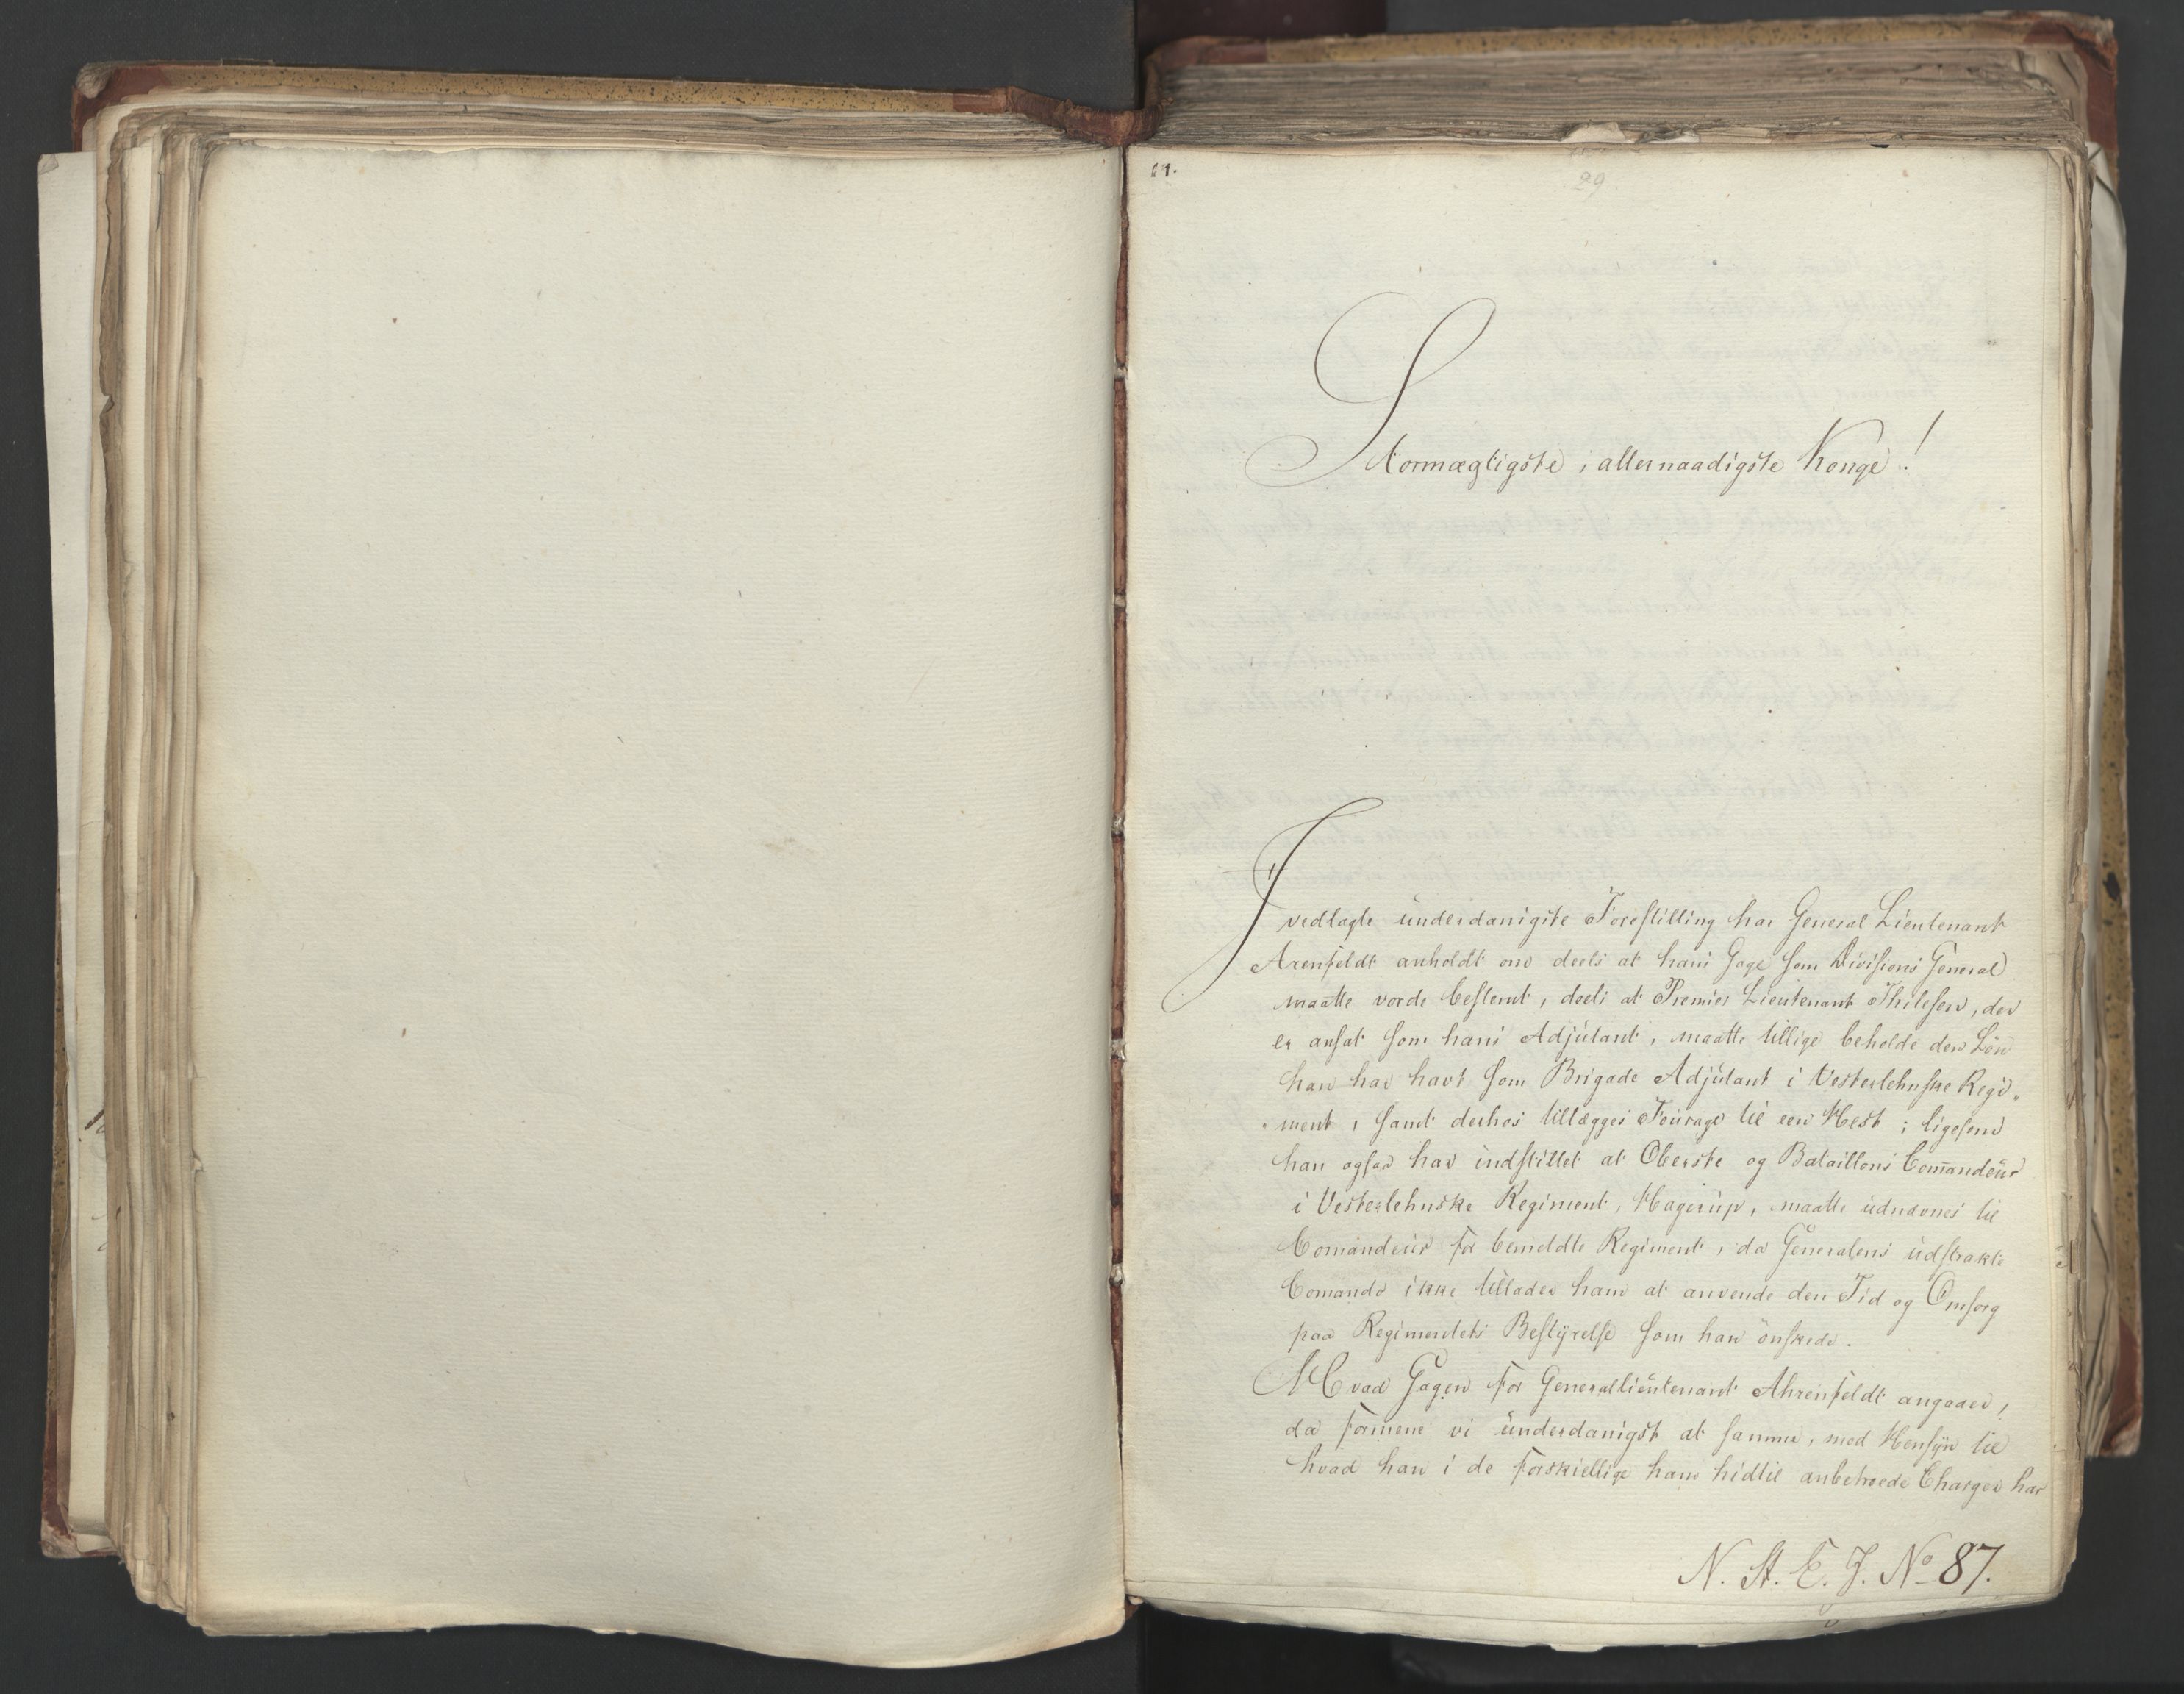 29
Stormægtigste, allernaadigste Konge!
I vedlagte ünderdanigste Forestilling har General Lieutenant
Arenfeldt anholdt om deels at hans Gage som Divisions General
maatte vorde bestemt, deels at Premier Lieutenant Thilesen, der
er ansat som hans Adjütant, maatte tillige beholde den Løn
han har havt som Brigade Adjütant i Vesterlehnske Regi-
-ment, samt derhos tillægges Foürage til een Hest; ligesom
han ogsaa har indstillet at Oberste og Bataillons Com̄andeür
i Vesterlehnske Regiment, Hagerüp, maatte üdnævnes til
Com̄andeür for bemeldte Regiment, da Generalens üdstrakte
Comando ikke tillader ham at anvende den Tid og Omsorg
paa Regimentets Bestÿrelse som han ønskede.
Hvad Gagen for Generallieütenant Ahrenfeldt angaaer,
da formene vi ünderdanigst at samme, med Hensÿn til
hvad han i de forskiellige ham hidtil anbetroede Charger har
N. St. E. J. No 87.